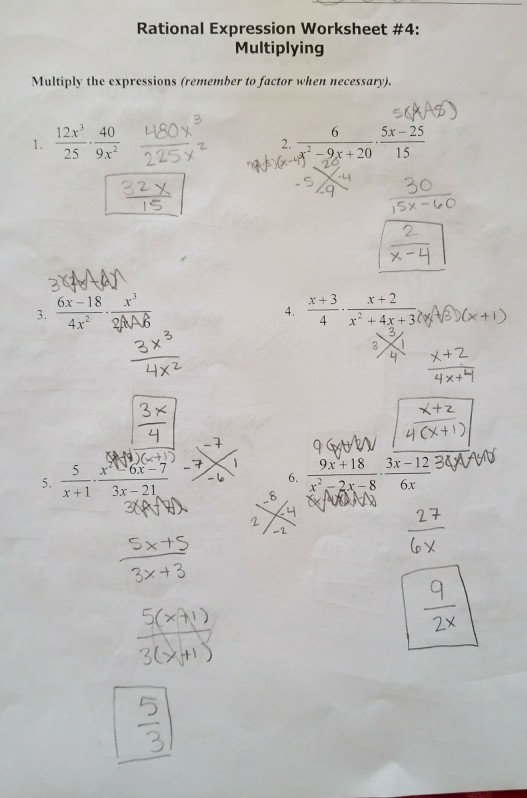 Rational Expression Worksheet #4:
Multiplying
Multiply the expressions (remember to factor when necessary).
1. 12x³/25 · 40/9x² 480x³/225x²
32x/15
2. 6/x² – 9x + 20 · 5x – 25/15
20
-5 -4
-9
30/15x-60
2/x-4
3. 6x – 18/4x² · x³/
3x³/4x²
3x/4
4. x + 3/4 · x + 2/x² + 4x + 3 (x+3)(x+1)
3
3 1
4
x+2/4x+4
x+2/4(x+1)
5. 5/x + 1 · x² 6x – 7/3x – 21
(x+1)
-7
-7 1
-6
5x+5/3x+3
5(x+1)/3(x+1)
5/3
6. 9x + 18/x² – 2x – 8 · 3x – 12/6x
-8
2 -4
-2
27/6x
9/2x